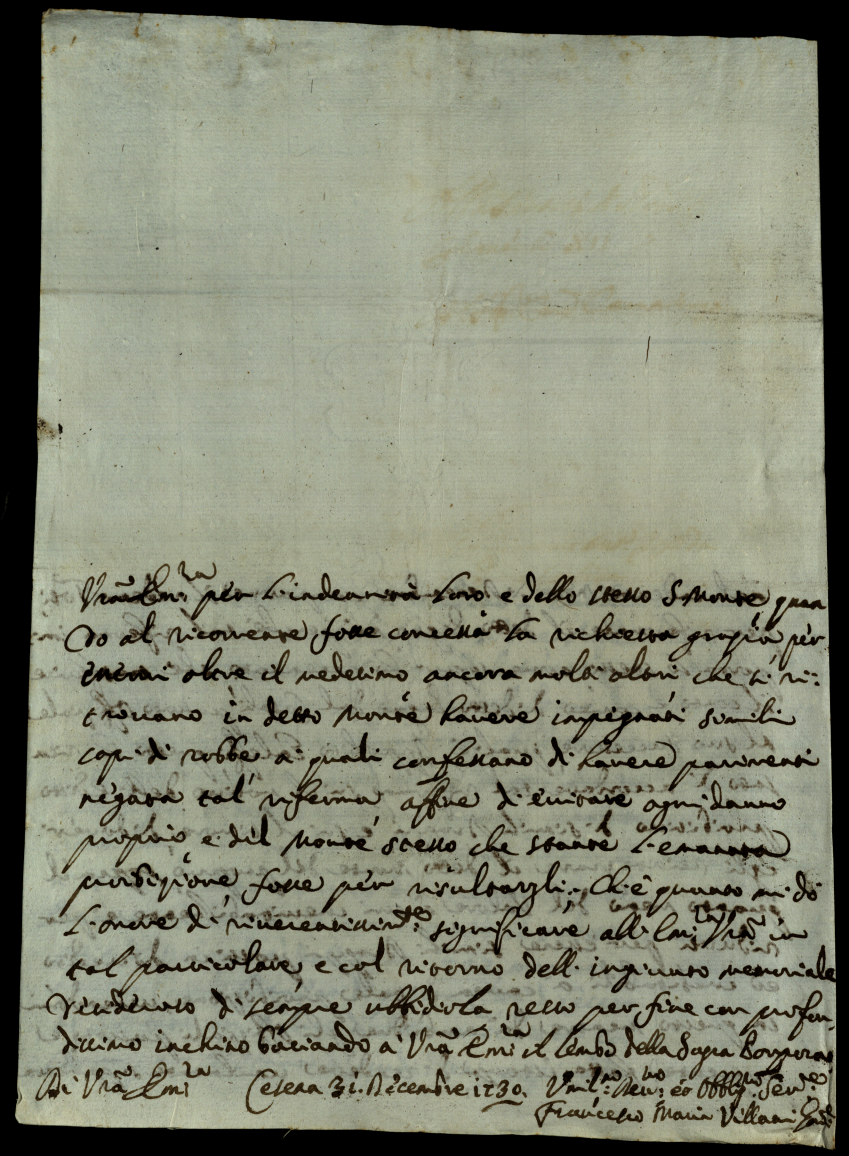 Vrã Em:za per l'indennità loro e dello stesso S. Monte quan
do al ricorrente fosse concessa la richiesta grazia per
esservi oltre il medesimo ancora molti altri che si ri:
trovano in detto Monte havere impegnati simili
capi di robbe a i quali confessano di havere parimenti
negata tal' riferma affine di evitare ogni danno
proprio e del Monte stesso che stante l'emanata
proibizione fosse per risultargli. Ch'è quanto mi dò
l'onore di riverentissim:te significare all'Em:za Vrã in
tal particolare, e col ritorno dell'ingiunto memoriale
desideroso di sempre ubbidirla resto per fine con profon
dissimo inchino baciando à Vrã Em:za il lembo della Sagra Porpora
Di Vrã Em:za Cesena 31. Decembre 1730. Umil:mo Dev:mo ed Obblig:mo Ser:re
Francesco Maria Villani